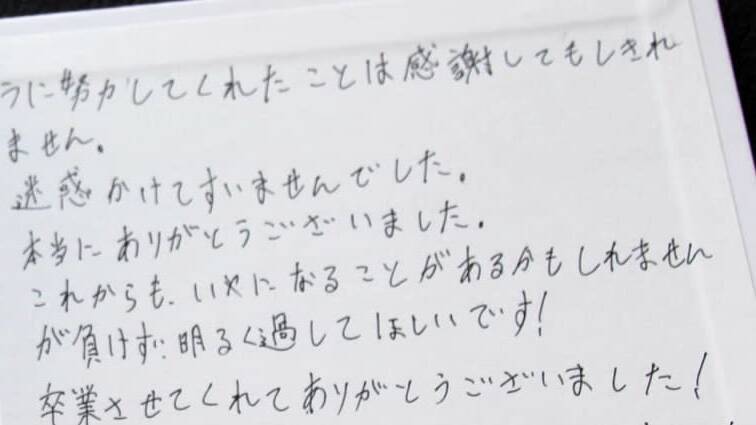 うに努力してくれたことは感謝してもしきれ
ません。
迷惑かけてすいませんでした。
本当にありがとうございました。
これからも、いやになることがあるかもしれません
が負けず、明るく過してほしいです!
卒業させてくれてありがとうございました!